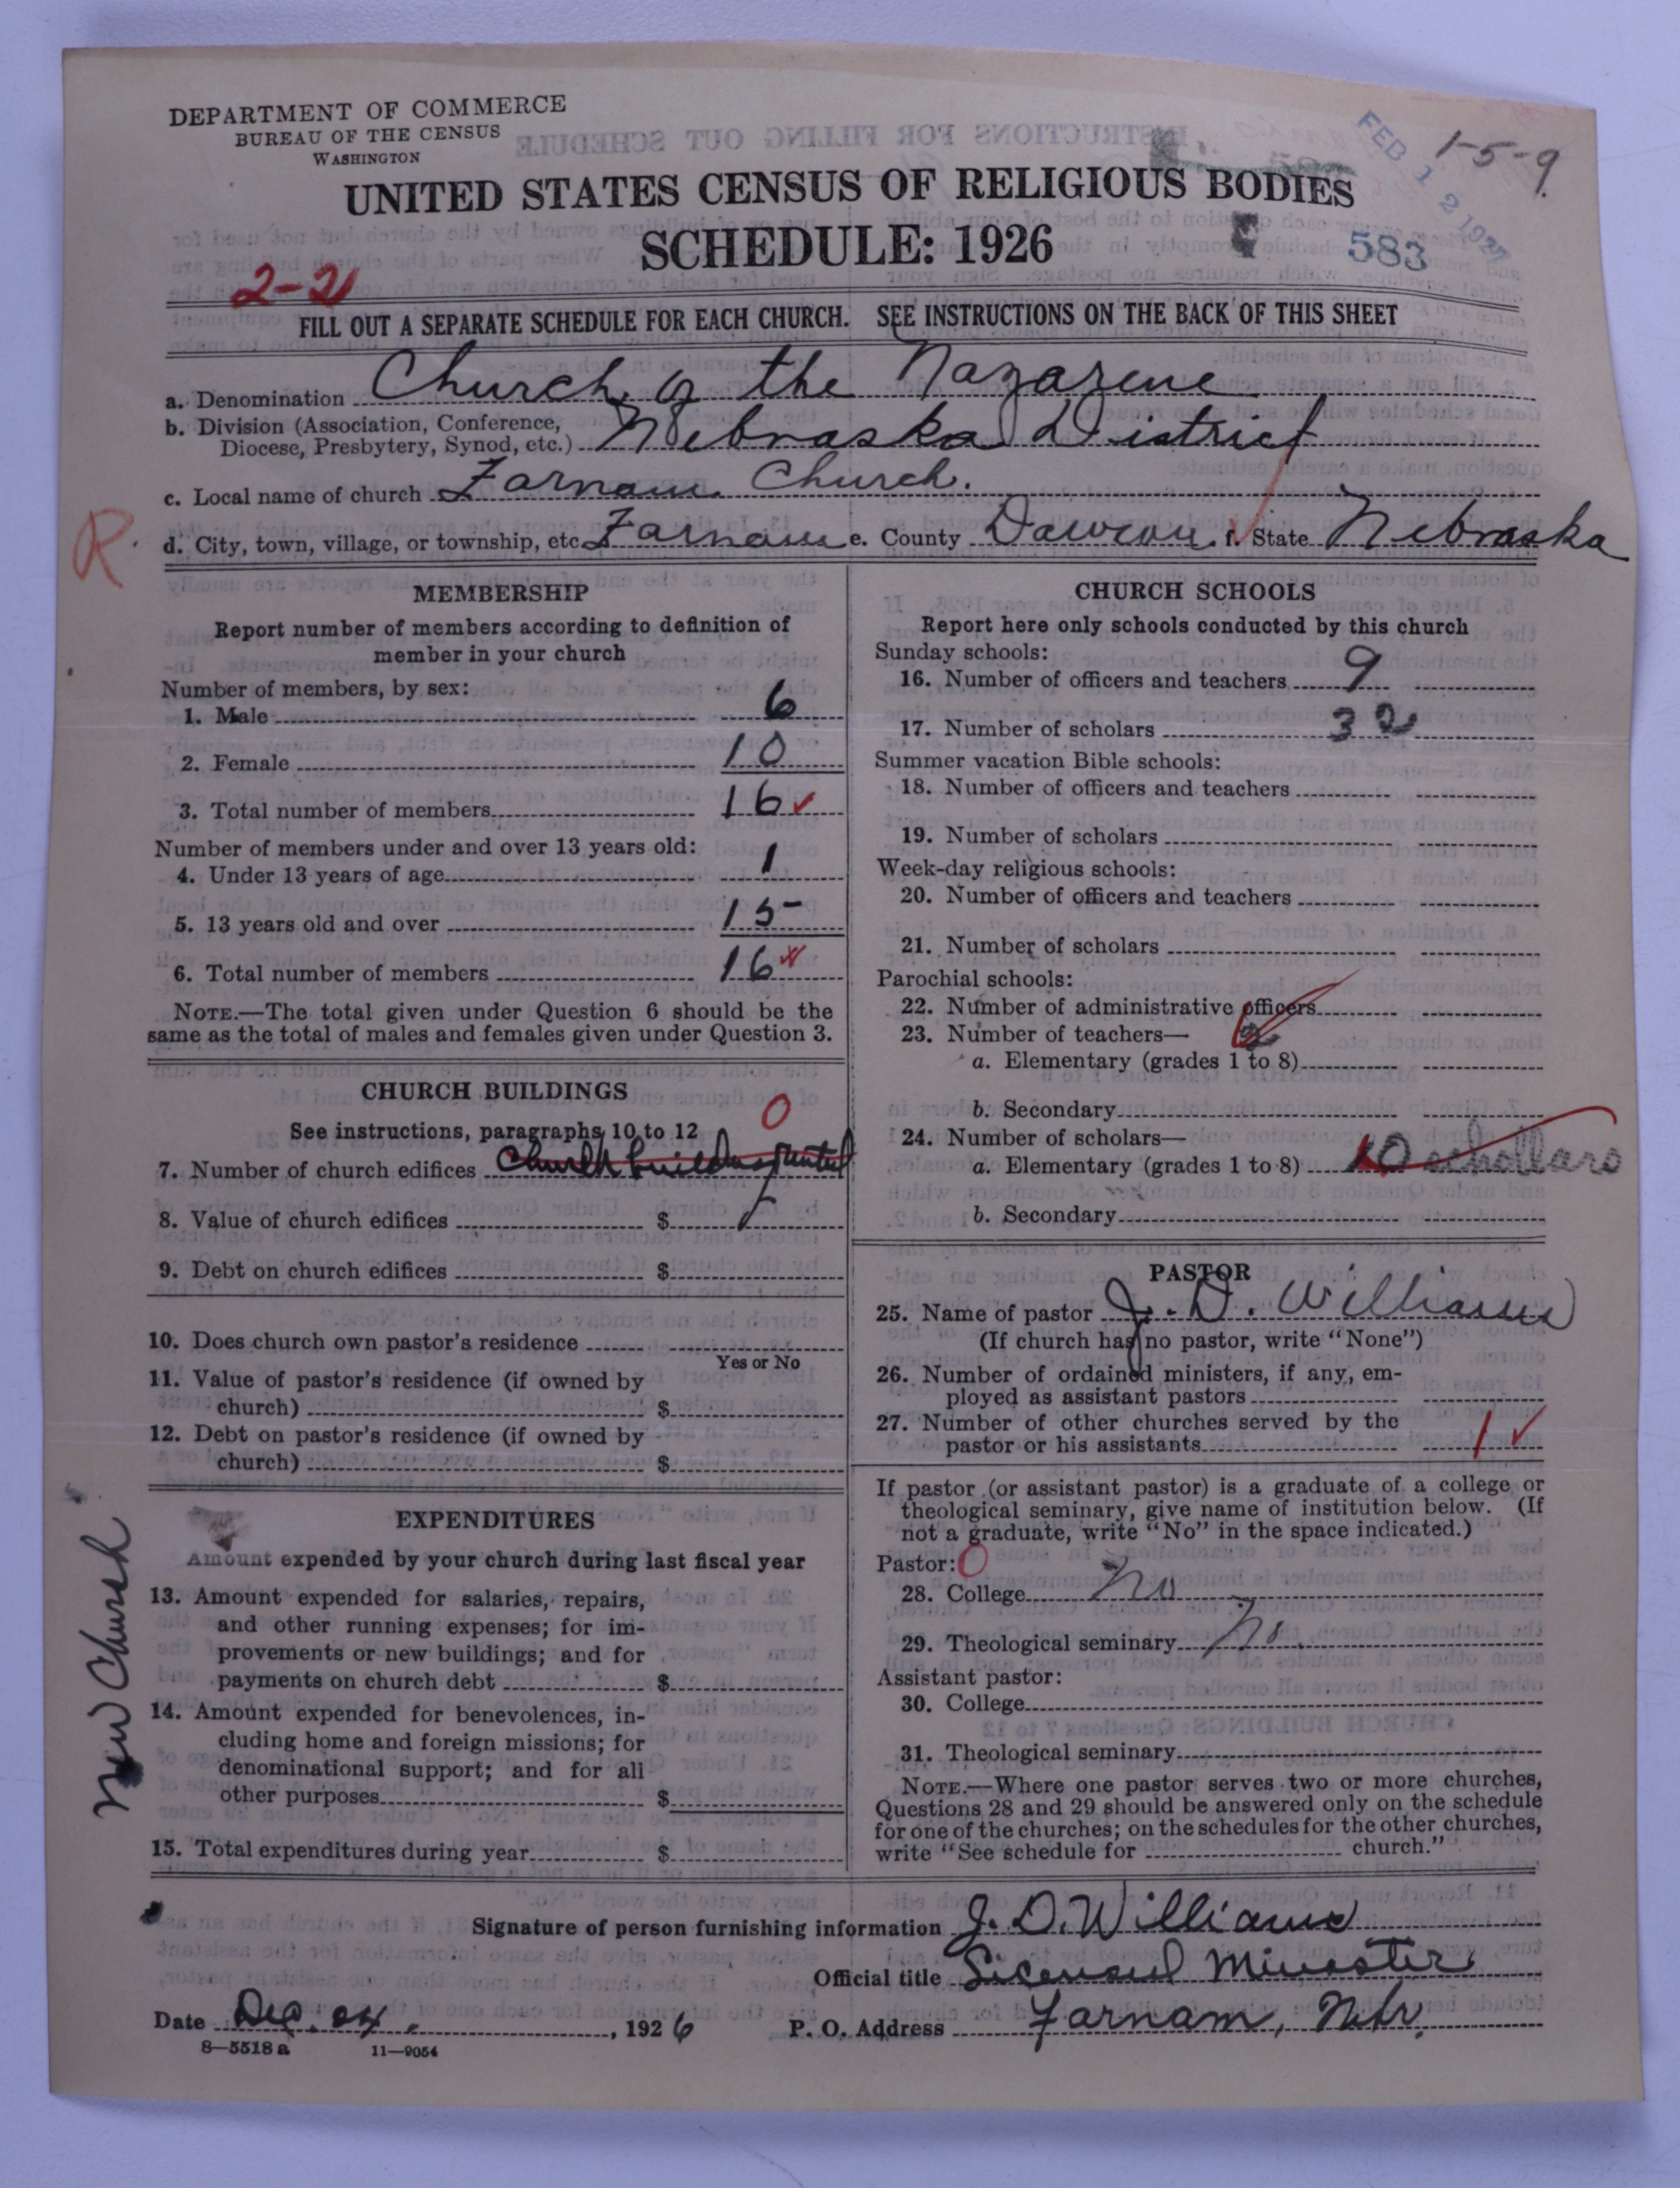 DEPARTMENT OF COMMERCE
BUREAU OF THE CENSUS
WASHINGTON
FEB 12 1927
1-5-9
UNITED STATES CENSUS OF RELIGIOUS BODIES
SCHEDULE: 1926
583
2-21
FILL OUT A SEPARATE SCHEDULE FOR EACH CHURCH. SEE INSTRUCTIONS ON THE BACK OF THIS SHEET
a. Denomination Church of the Nazarene
b. Division (Association, Conference,
Diocese, Presbytery, Synod, etc.) Nebraska District
c. Local name of church Farnam Church.
R. d. City, town, village, or township, etc. Farnam e. County Dawson f. State Nebraska
MEMBERSHIP
Report number of members according to definition of
member in your church
Number of members, by sex:
1. Male 6
2. Female 10
3. Total number of members 16
Number of members under and over 13 years old:
4. Under 13 years of age 1
5. 13 years old and over 15
6. Total number of members 16
NOTE.—The total given under Question 6 should be the
same as the total of males and females given under Question 3.
CHURCH BUILDINGS
See instructions, paragraphs 10 to 12 0
7. Number of church edifices Church building rented
8. Value of church edifices $
9. Debt on church edifices $
10. Does church own pastor's residence
Yes or No
11. Value of pastor's residence (if owned by
church) $
12. Debt on pastor's residence (if owned by
church) $
New Church
EXPENDITURES
Amount expended by your church during last fiscal year
13. Amount expended for salaries, repairs,
and other running expenses; for im-
provements or new buildings; and for
payments on church debt $
14. Amount expended for benevolences, in-
cluding home and foreign missions; for
denominational support; and for all
other purposes $
15. Total expenditures during year $
CHURCH SCHOOLS
Report here only schools conducted by this church
Sunday schools:
16. Number of officers and teachers 9
17. Number of scholars 32
Summer vacation Bible schools:
18. Number of officers and teachers
19. Number of scholars
Week-day religious schools:
20. Number of officers and teachers
21. Number of scholars
Parochial schools:
22. Number of administrative officers
23. Number of teachers— 2
a. Elementary (grades 1 to 8)
b. Secondary
24. Number of scholars—
a. Elementary (grades 1 to 8) 10 schollars
b. Secondary
PASTOR
25. Name of pastor J. D. Williams
(If church has no pastor, write "None")
26. Number of ordained ministers, if any, em-
ployed as assistant pastors
27. Number of other churches served by the
pastor or his assistants 1
If pastor (or assistant pastor) is a graduate of a college or
theological seminary, give name of institution below. (If
not a graduate, write "No" in the space indicated.)
Pastor: 0
28. College No
29. Theological seminary No.
Assistant pastor:
30. College
31. Theological seminary
NOTE.—Where one pastor serves two or more churches,
Questions 28 and 29 should be answered only on the schedule
for one of the churches; on the schedules for the other churches,
write "See schedule for church."
Signature of person furnishing information J. D. Williams
Official title Licensed Minister
Date Dec. 24, 1926 P. O. Address Farnam, Nebr.
8—5518 a 11—9054